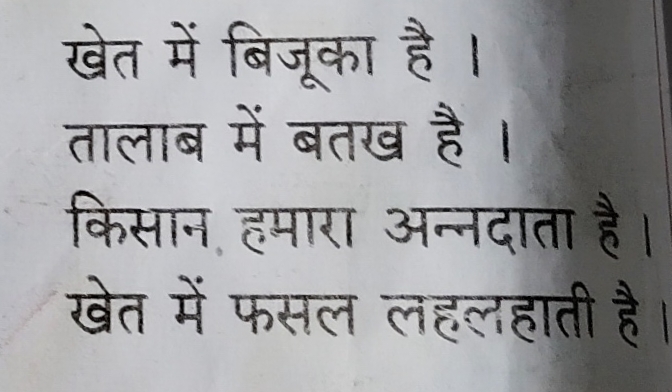 खेत में बिजूका है ।
तालाब में बतख है ।
किसान हमारा अन्नदाता है ।
खेत में फसल लहलहाती है ।